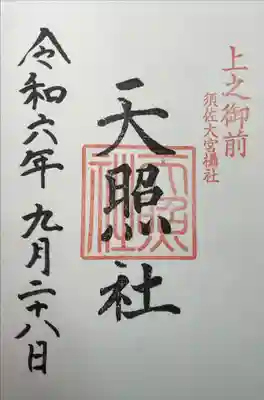 上之御前
須佐大宮摂社
天照社
天照社
令和六年九月二十八日